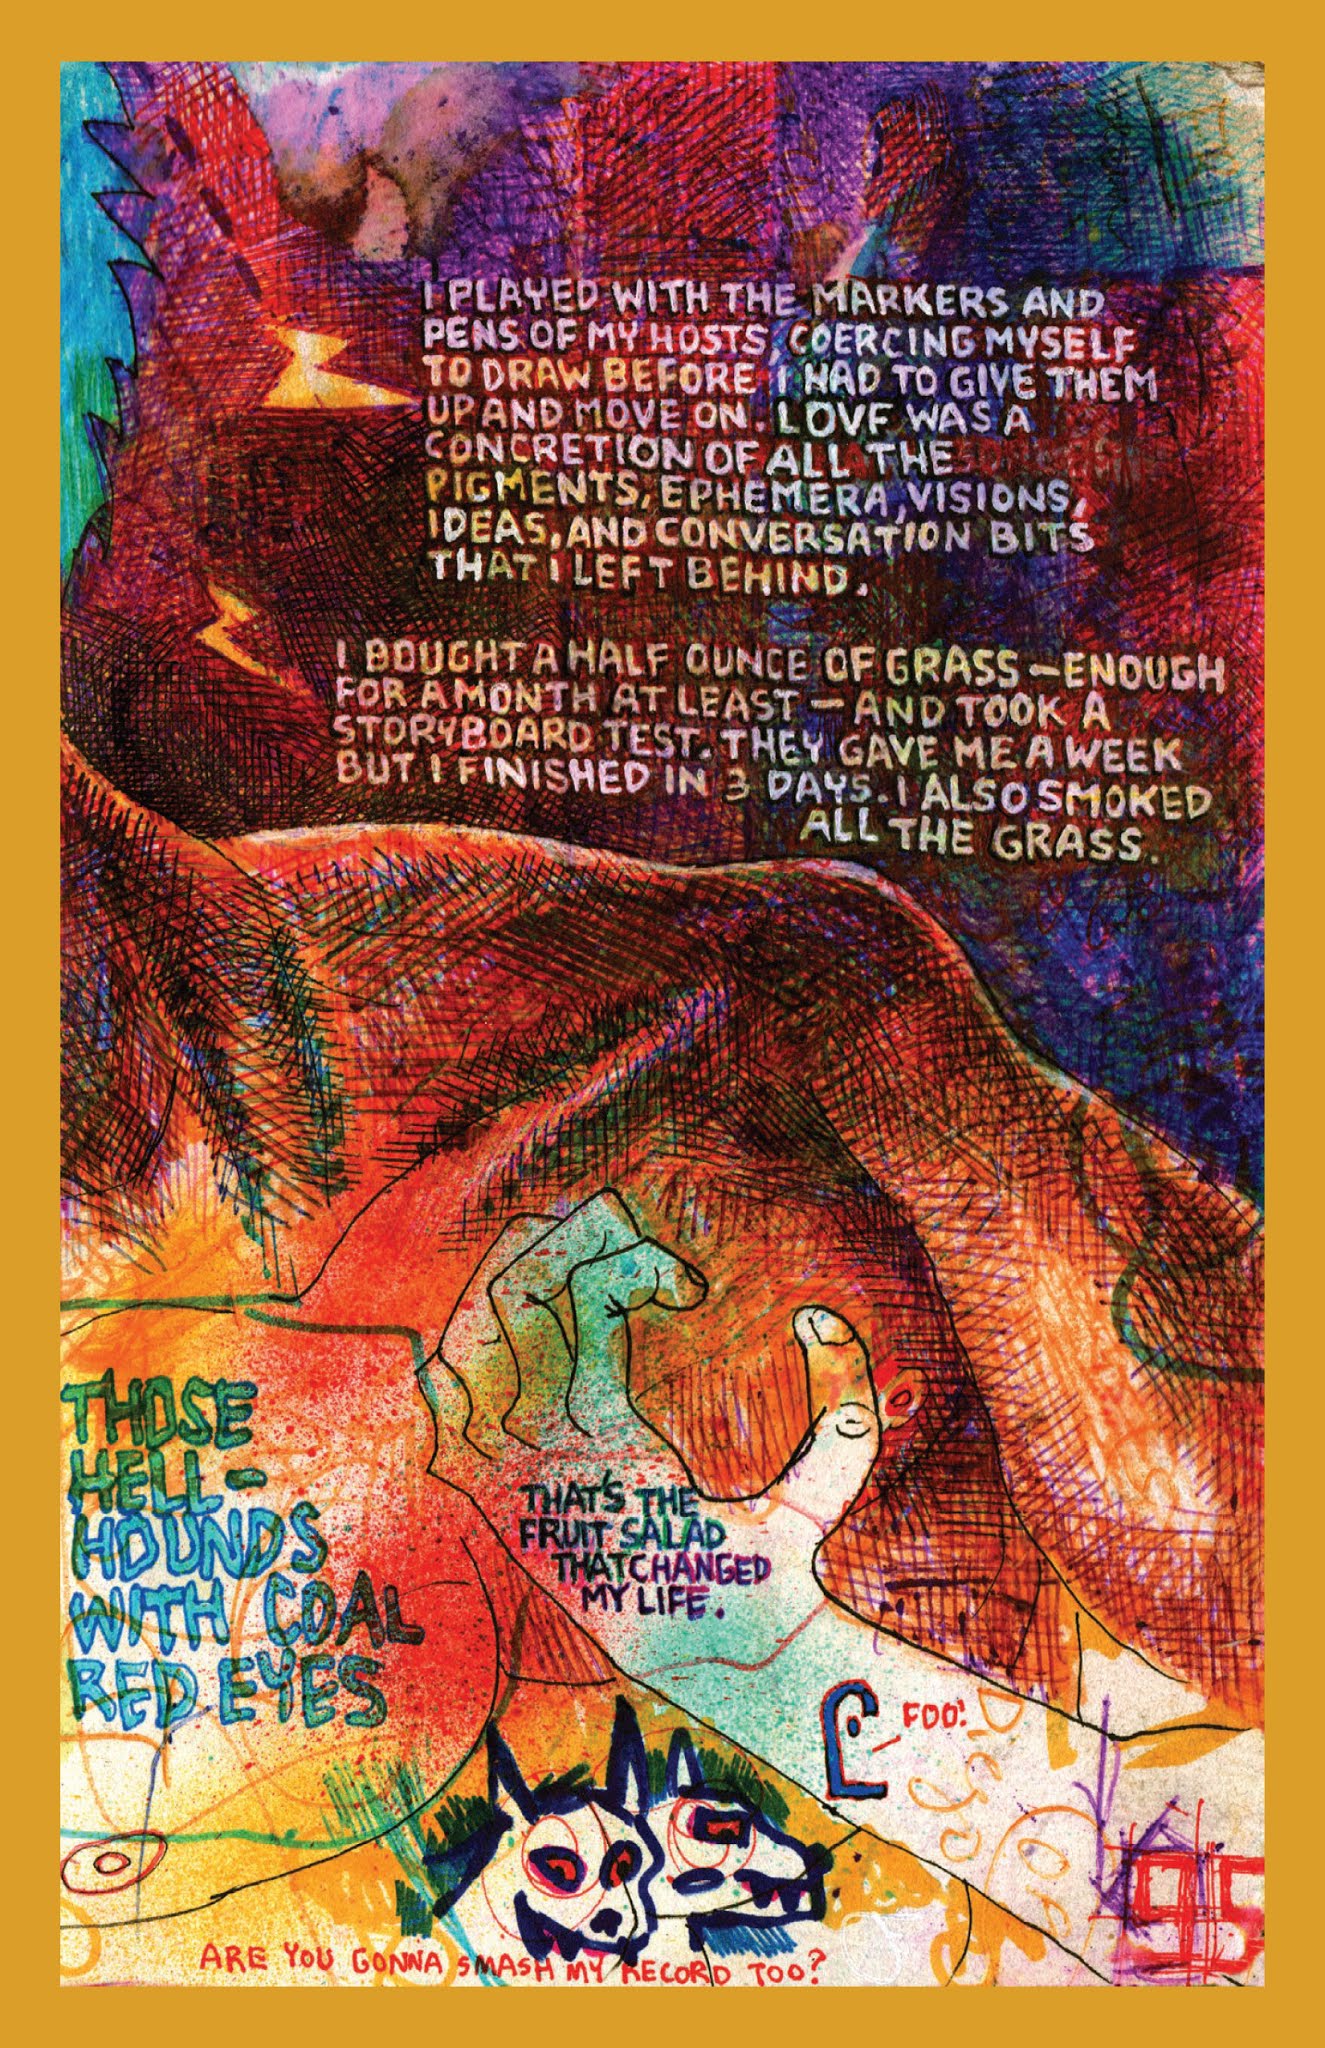 I PLAYED WITH THE MARKERS AND
PENS OF MY HOSTS, COERCING MYSELF
TO DRAW BEFORE I HAD TO GIVE THEM
UP AND MOVE ON. LOVE WAS A
CONCRETION OF ALL THE
PIGMENTS, EPHEMERA, VISIONS,
IDEAS, AND CONVERSATION BITS
THAT I LEFT BEHIND.
I BOUGHT A HALF OUNCE OF GRASS — ENOUGH
FOR A MONTH AT LEAST — AND TOOK A
STORYBOARD TEST. THEY GAVE ME A WEEK
BUT I FINISHED IN 3 DAYS. I ALSO SMOKED
ALL THE GRASS.
THOSE
HELL-
HOUNDS
WITH COAL
RED EYES
THAT'S THE
FRUIT SALAD
THAT CHANGED
MY LIFE.
FOO!
95
ARE YOU GONNA SMASH MY RECORD TOO?